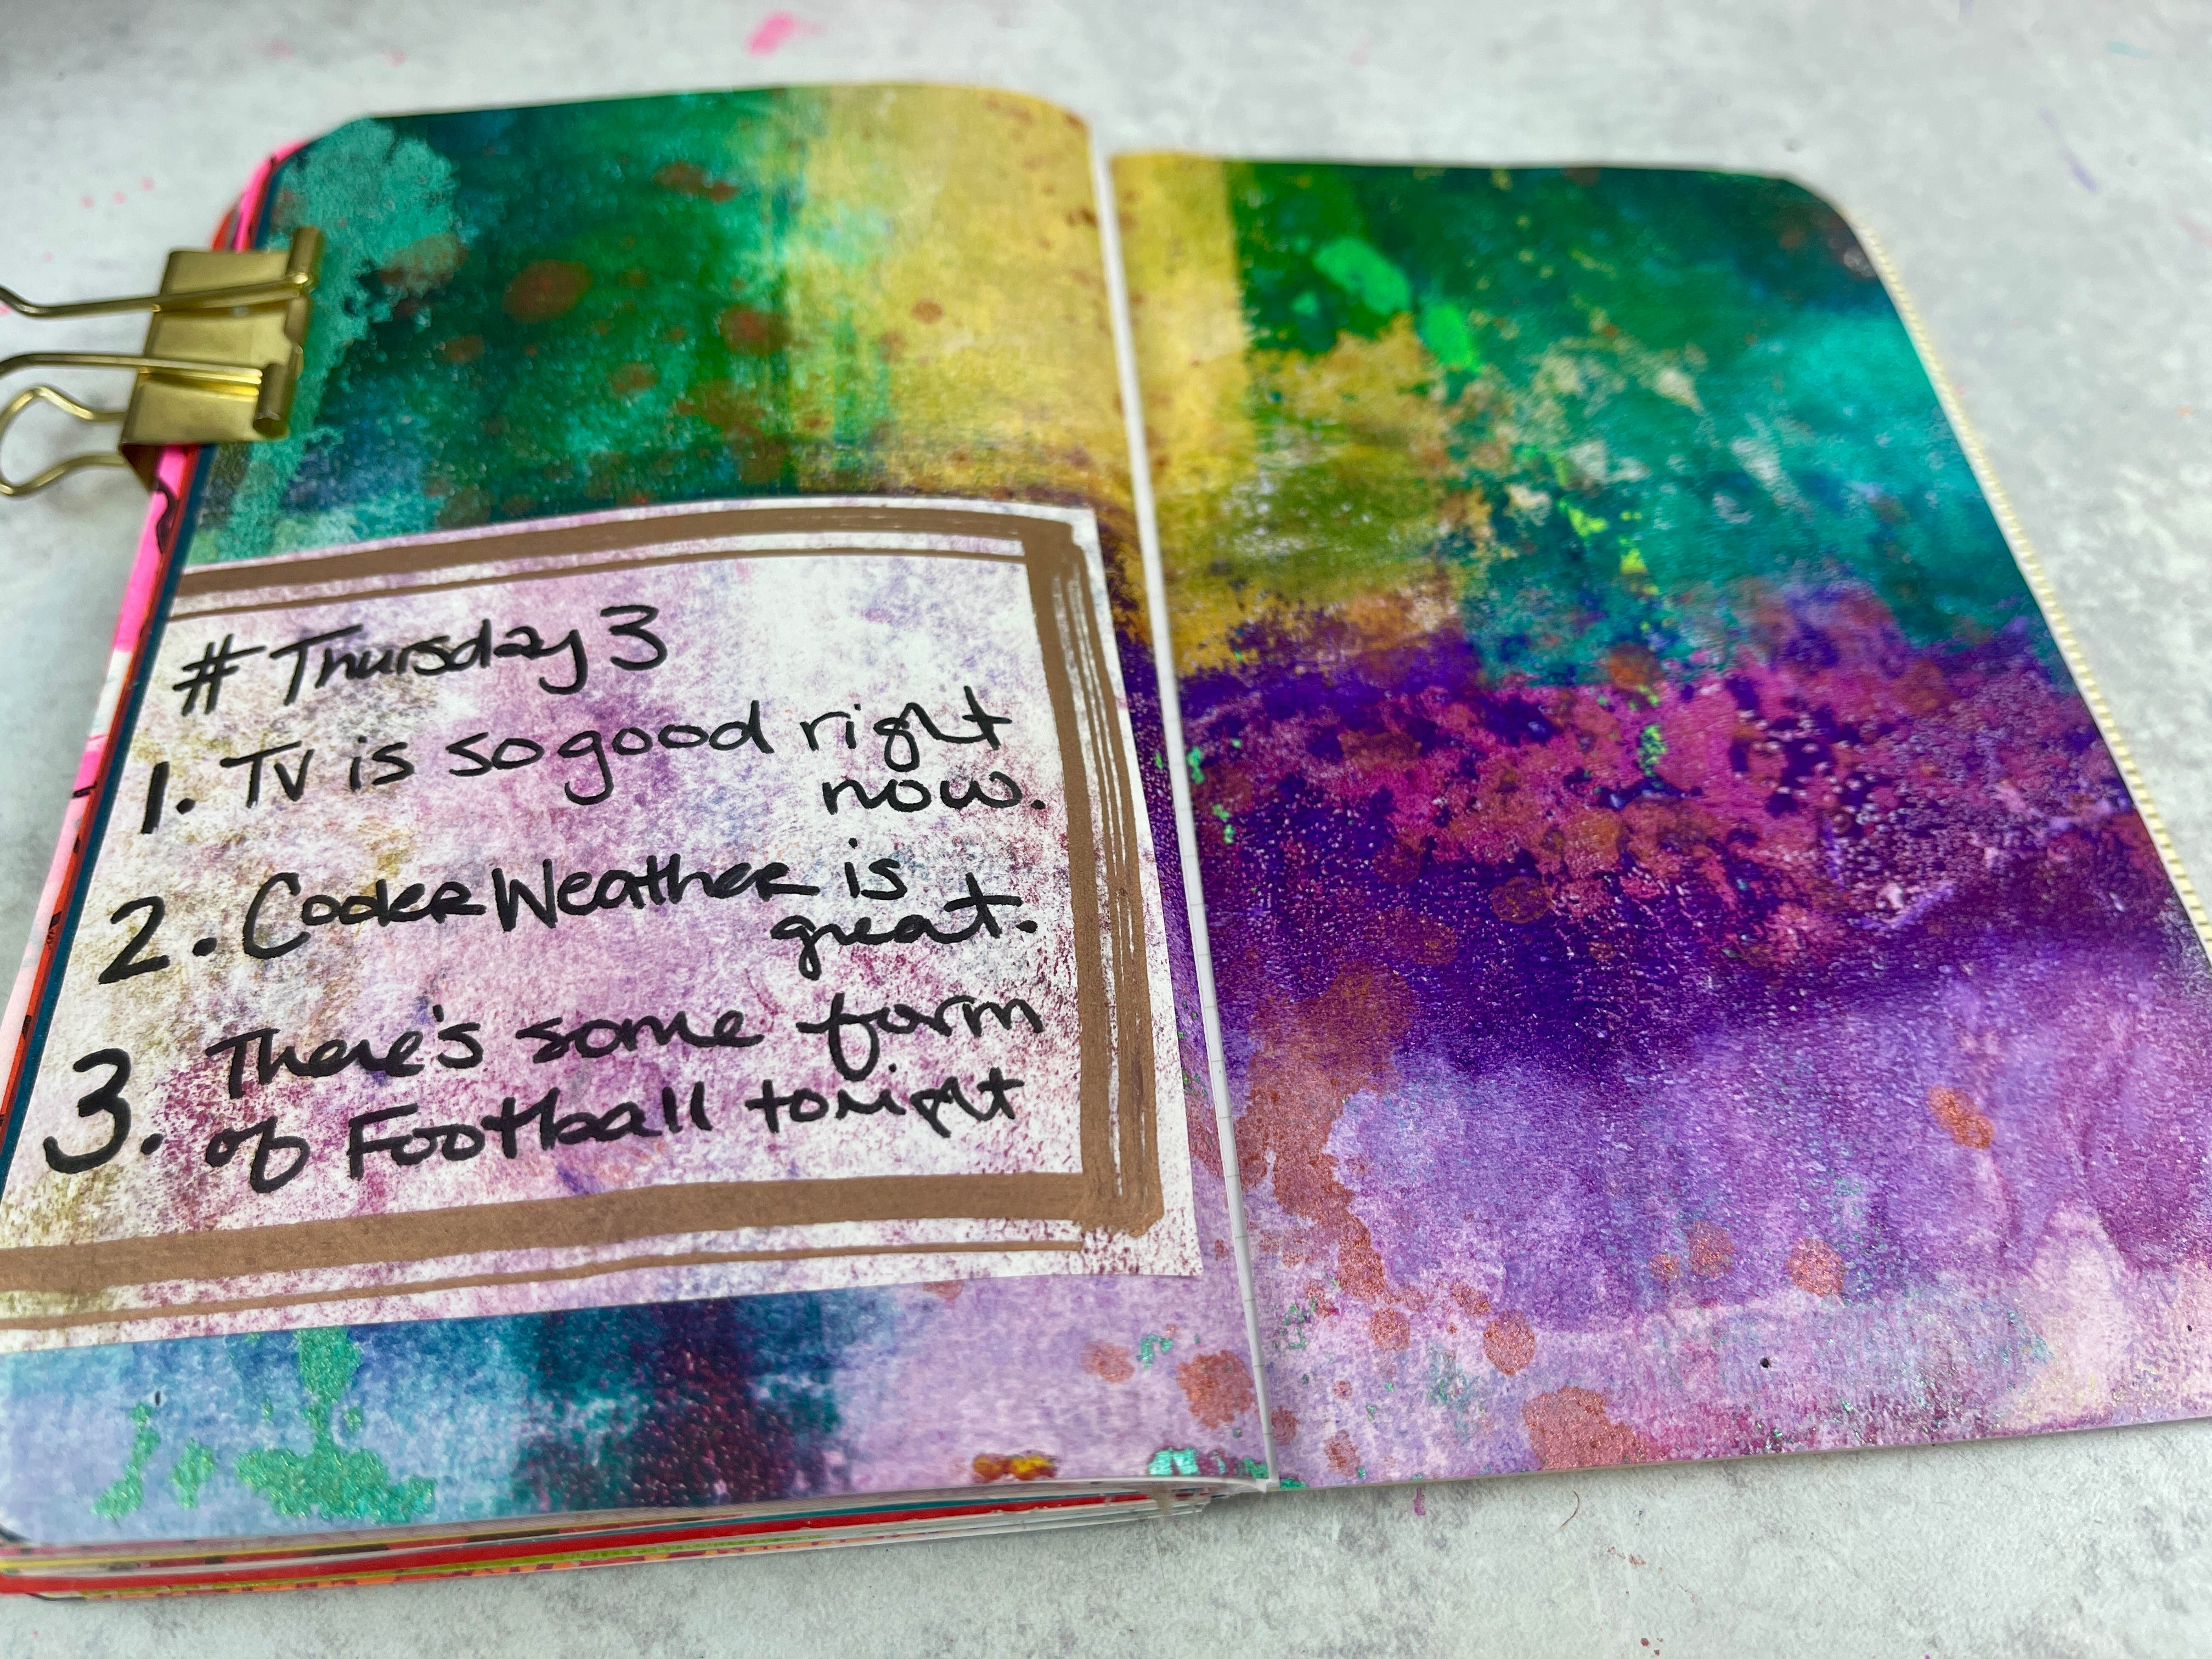 # Thursday 3
1. TV is so good right
now.
2. Cooler Weather is
great.
3. There's some form
of Football tonight